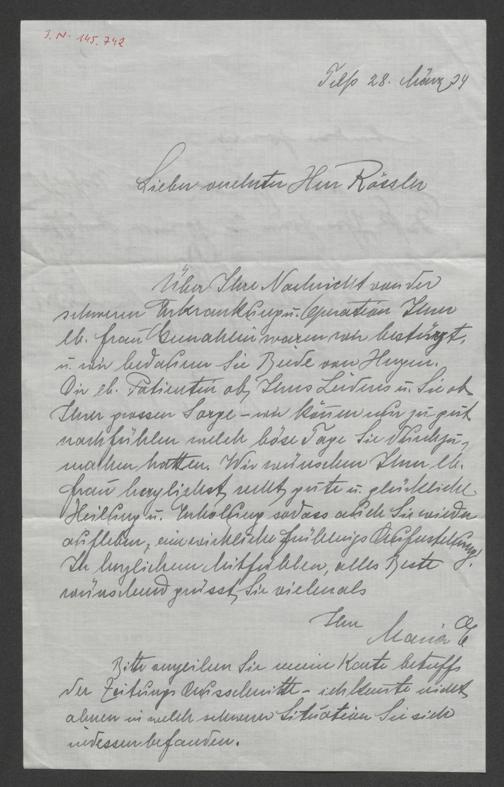 J. N. 145.742
Telfs 28. März 34
Lieber verehrter Herr Rössler
Über Ihre Nachricht von der
schweren Erkrankung u. Operation Ihrer
lb. Frau Gemahlin waren wir bestürzt,
u. wir bedauern Sie Beide von Herzen.
Die lb. Patientin ob Ihres Leidens u. Sie ob
Ihrer grossen Sorge – wir können nur zu gut
nachfühlen welch böse Tage Sie durchzu-
machen hatten. Wir wünschen Ihrer lb.
Frau herzlichst recht gute u. glückliche
Heilung u. Erholung sodass auch Sie wieder
aufleben, eine wirkliche Frühlings Auferstehung!
In herzlichem Mitfühlen, alles Beste
wünschend grüsst Sie vielmals
Ihre
Maria
Bitte verzeihen Sie meine Karte betreffs
der Zeitungs Ausschnitte – ich konnte nicht
ahnen in welch schwerer Situation Sie sich
indessen befanden.